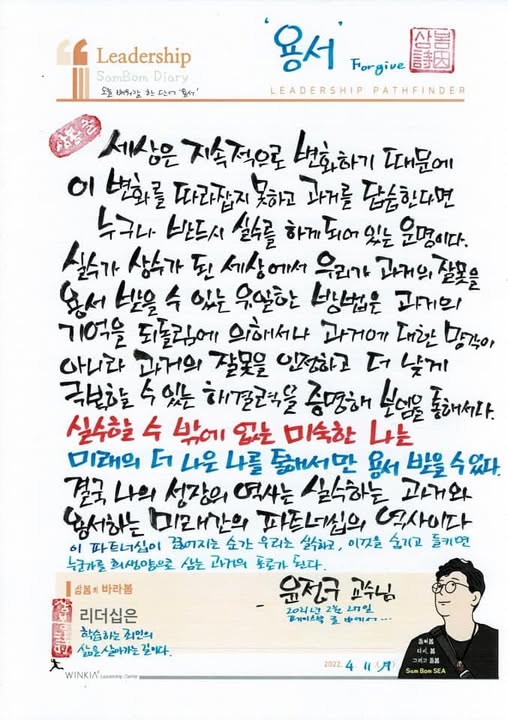 Leadership
SamBom Diary
'용서'
Forgive
삼봄
詩因
LEADERSHIP PATHFINDER
삼봄길
세상은 지속적으로 변화하기 때문에
이 변화를 따라잡지 못하고 과거를 답습한다면
누구나 반드시 실수를 하게 되어 있는 운명이다.
실수가 상수가 된 세상에서 우리가 과거의 잘못을
용서 받을 수 있는 유일한 방법은 과거의
기억을 되돌림에 의해서나 과거에 대한 망각이
아니라 과거의 잘못을 인정하고 더 낫게
극복할 수 있는 해결력을 증명해 보임을 통해서다.
실수할 수 밖에 없는 미숙한 나는
미래의 더 나은 나를 통해서만 용서 받을 수 있다.
결국 나의 성장의 역사는 실수하는 과거와
용서하는 미래간의 파트너십의 역사이다
이 파트너십이 끊어지는 순간 우리는 실수하고, 이것을 숨기고 들키면
누군가를 희생양으로 삼는 과거의 포로가 된다.
삼봄의 바라봄
- 윤정구 교수님
2021년 2월 27일
리더십은
학습하는 죄인의
삶을 살아가는 길이다.
돌봐봄
다시, 봄
그리고 돌봄
Sam Bom SEA
2022. 4 11 (月)
WINKIA Leadership Center